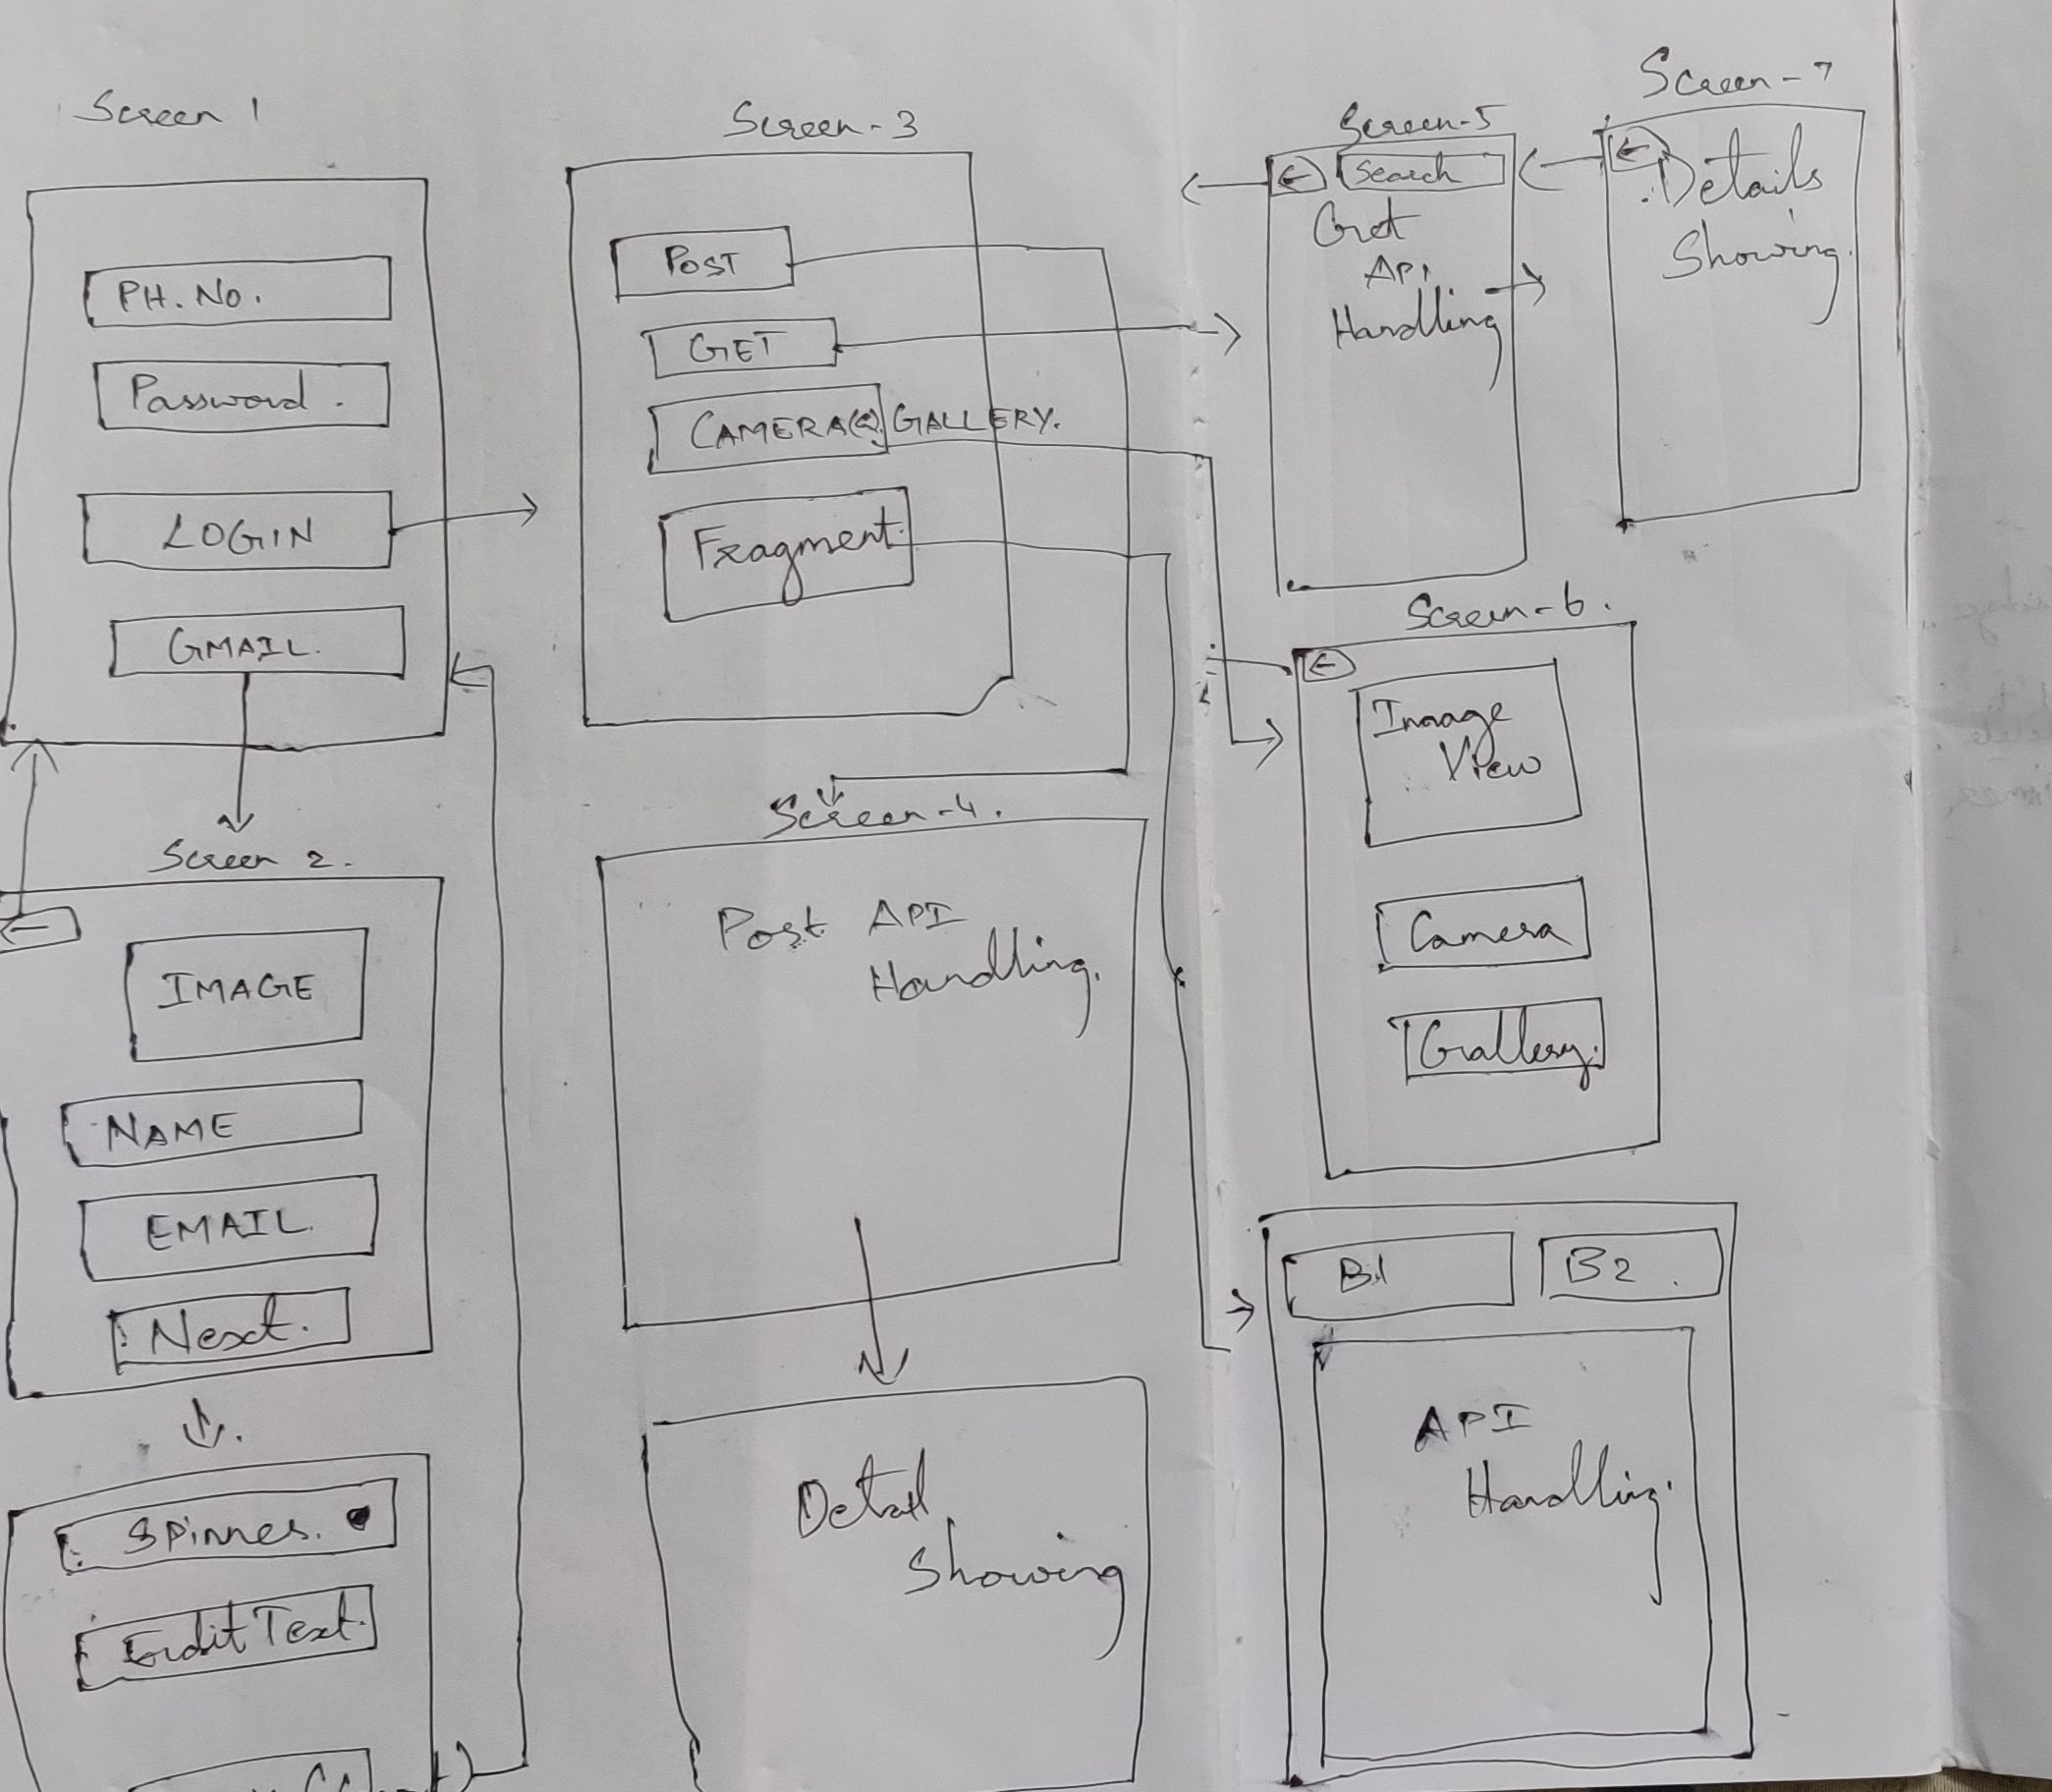 Screen 1
PH. No.
Password.
LOGIN
GMAIL.
Screen 2.
←
IMAGE
NAME
EMAIL.
Next.
Spinner.
Edit Text.
Screen-3
POST
GET
CAMERA(&) GALLERY.
Fragment.
Screen-4.
Post API
Handling.
Detail
Showing
Screen-5
← Search
Get
API
Handling
Screen-7
←
Details
Showing.
Screen-6.
←
Image
View
Camera
Gallery.
B1 B2.
API
Handling.